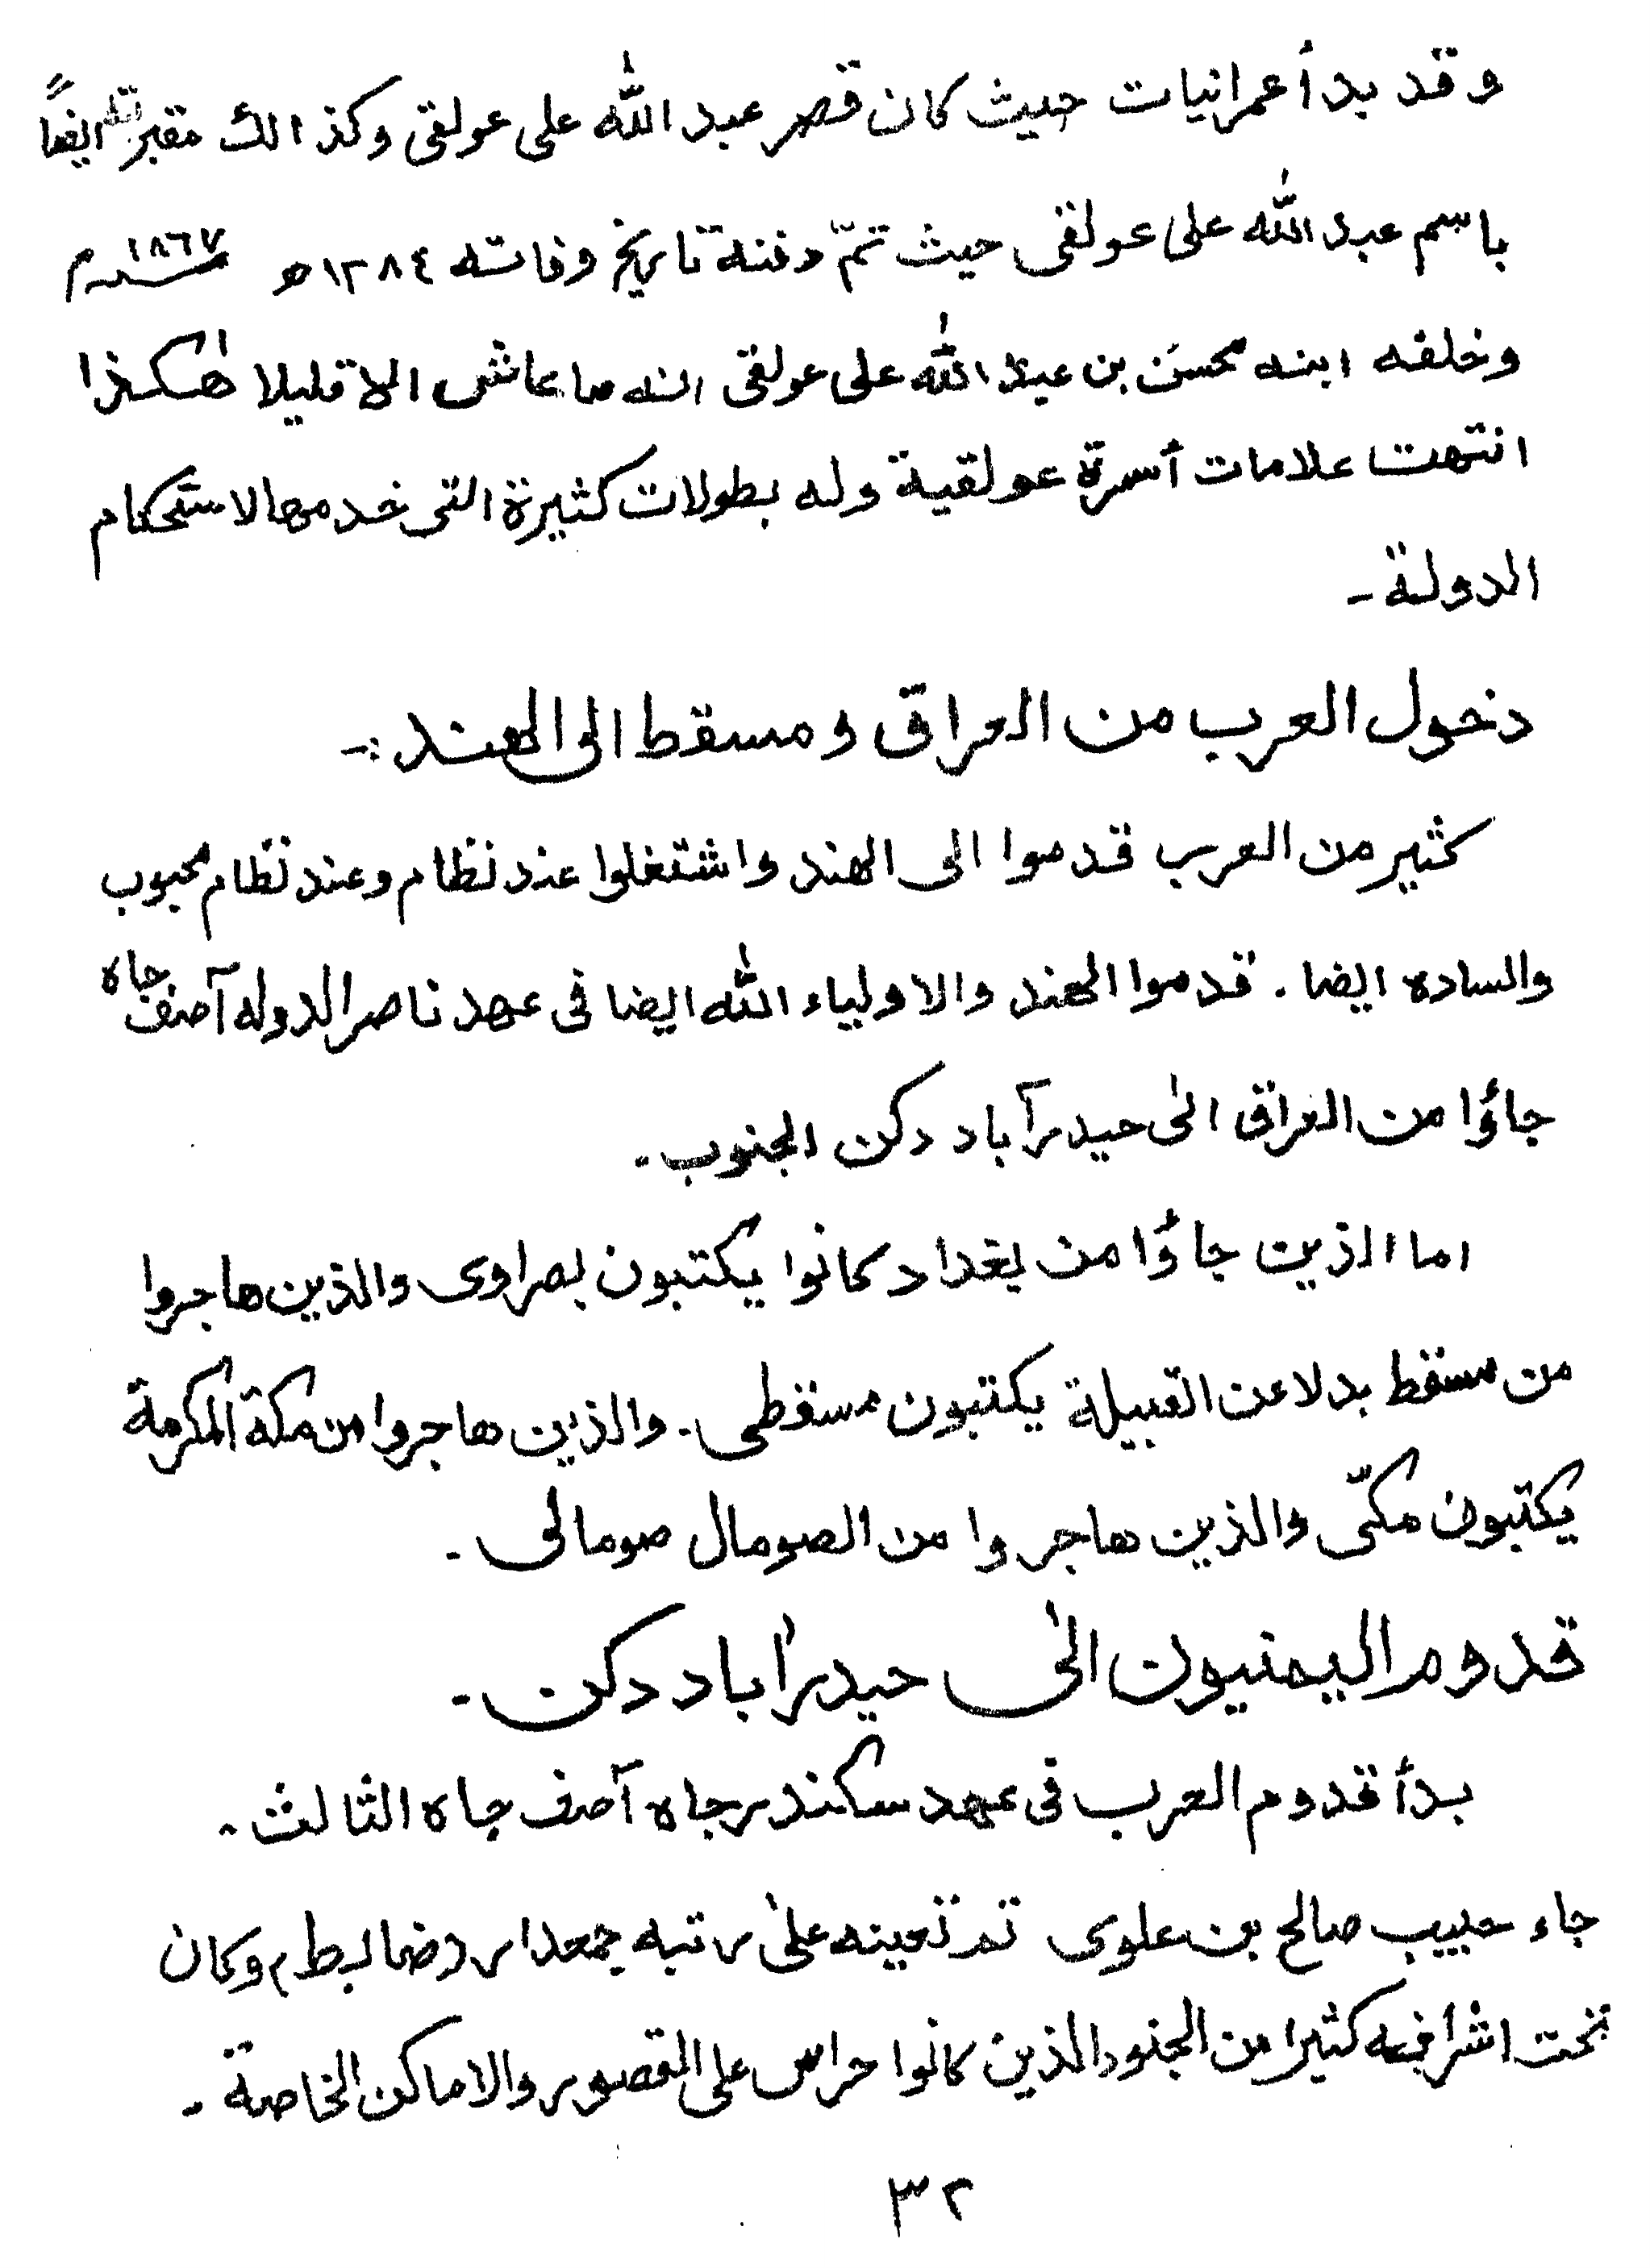 وقد بدأ عمرانيات حيث كان قصر عبد اللّٰه على عولقى وكذالك مقبرته ايضاً
باسم عبد اللّٰه على عولقى حيث تمّ دفنة تاريخ وفاته ١٢٨٤ھ ١٨٦٧م
وخلفه ابنه محسن بن عبد اللّٰه على عولقى انه ما عاش الا قليلا هٰكذا
انتهت علامات أسرة عولقية وله بطولات كثيرة التى خدمها لاستحكام
الدولة -
دخول العرب من العراق ومسقط الى الهند :-
كثير من العرب قدموا الى الهند واشتغلوا عند نظام وعند نظام محبوب
والساده ايضا . قدموا الهند والاولياء اللّٰه ايضا فى عهد ناصر الدوله آصف جاه
جاؤا من العراق الىٰ حيدرآباد دكن الجنوب -
اما الذين جاؤا من بغداد كانوا يكتبون بصراوى والذين هاجروا
من مسقط بدلا عن القبيلة يكتبون مسقطى - والذين هاجروا من مكة المكرمة
يكتبون مكّى والذين هاجروا من الصومال صومالى -
قدوم اليمنيون الىٰ حيدرآباد دكن -
بدأ قدوم العرب فى عهد سكندر جاه آصف جاه الثالث -
جاء حبيب صالح بن علوى تم تعينه علىٰ رتبه جمعدار (ضابط) وكان
تحت اشرافه كثيرا من الجنود الذين كانوا حراس على القصور والاماكن الخاصة -
٣٢